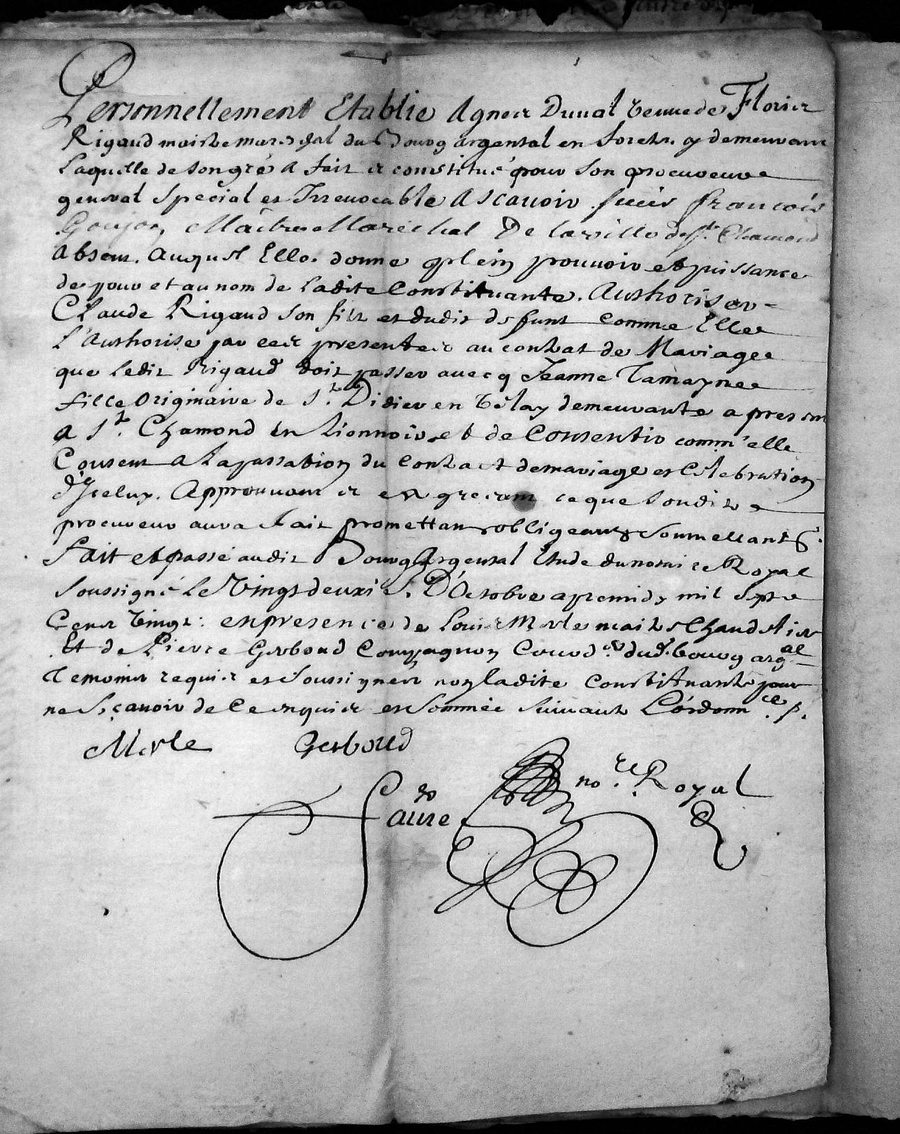 Personnellement Etablie Agnes Duual veuue de Florie
Rigaud maistre mareschal du Bourg argental en forets y demeurant
Laquelle de son gré a fait et constitué pour son procureur
general special et Irreuocable Ascauoir sieur françois
Goujon, Maitre Marêchal De la ville de St. Chamond
absent. Auquel Elle donne plein pouuoir et puissance
de pour et au nom de ladite Constituante. Authoriser
Claude Rigaud son fils et dudit defunt comme Elle
L'Authorise par ces presentes au contrat de Mariage
que ledit Rigaud doit passer auecq Jeanne Tamayne
fille originaire de St. Didier en velay demeurante a present
a St. Chamond en Lionnois et de Consentir comm'elle
Consent a la passation du contract de mariage et Célébration
d'Jceluy. Approuuant et en greant ce que sondit
procureur aura fait promettant obligeant soumettant &.
fait et passé audit Bourg Argental Etude du notaire Royal
soussigné le Vingt deuxie. D'octobre apremidy mil sept
Cent vingt: en presence de Louis Merle maitre Chandelier
Et de Pierre Gerboud Compagnon Cord.er dud. bourg arg.al
Temoins requis et soussignes non ladite constituante pour
ne sçauoir de ce enquise et sommée suiuant L'ordonn.ce
Merle Gerboud
no.re Royal
faure